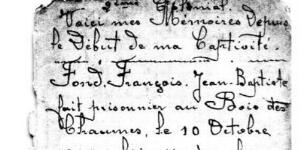 2ème Colonial.
Voici mes Mémoires Depuis
le Début de ma Captivité.
Fond, François, Jean-Baptiste
fait prisonnier au Bois des
Chaumes, le 10 Octobre